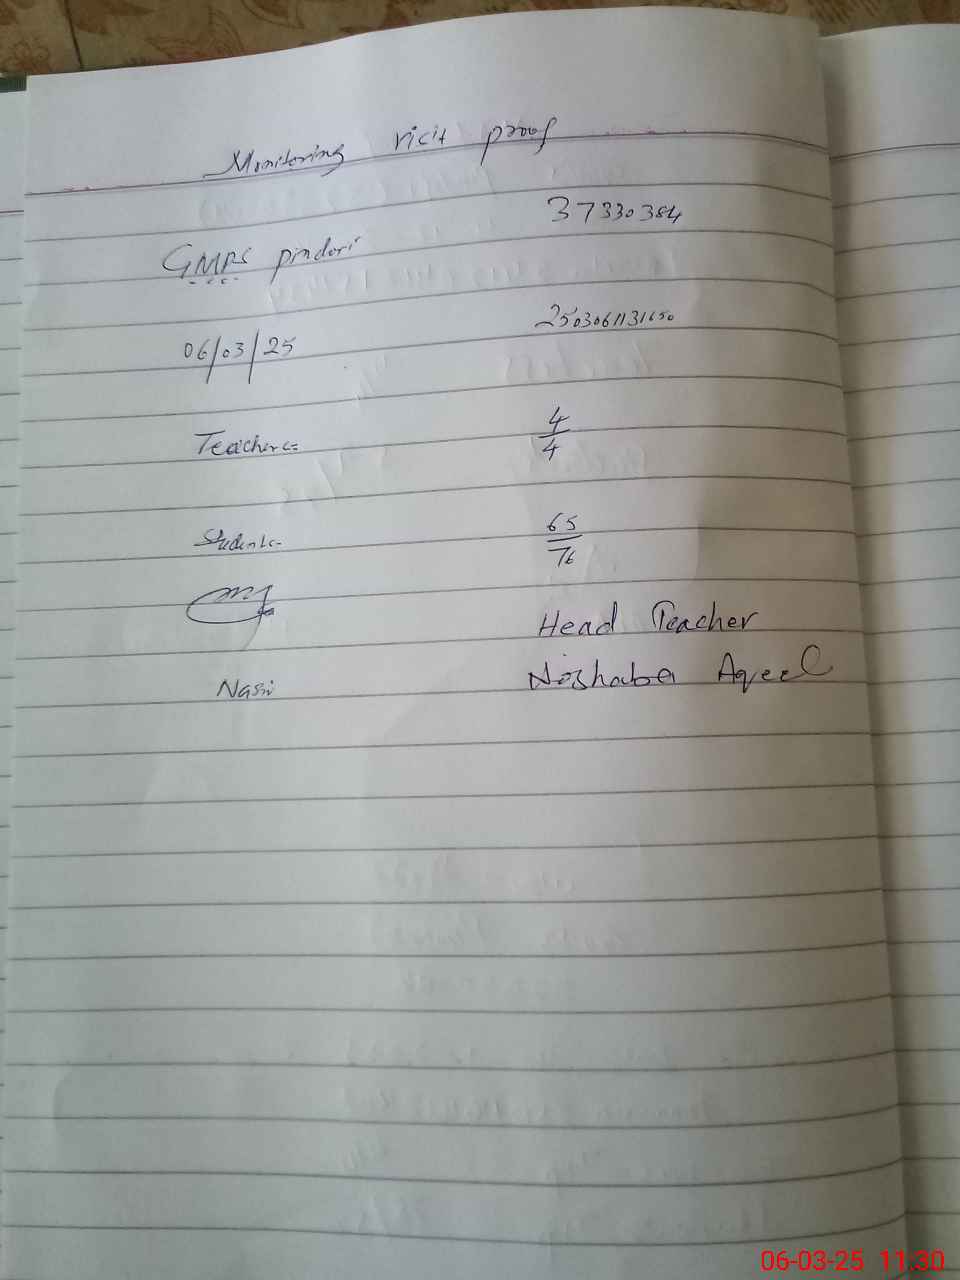 Monitoring vicit proof
37330384
GMPS pindori
2503061131650
06/03/25
Teachers= 4/4
Students= 65/76
Head Teacher
Nasir Noshaba Aqeel
06-03-25 11:30